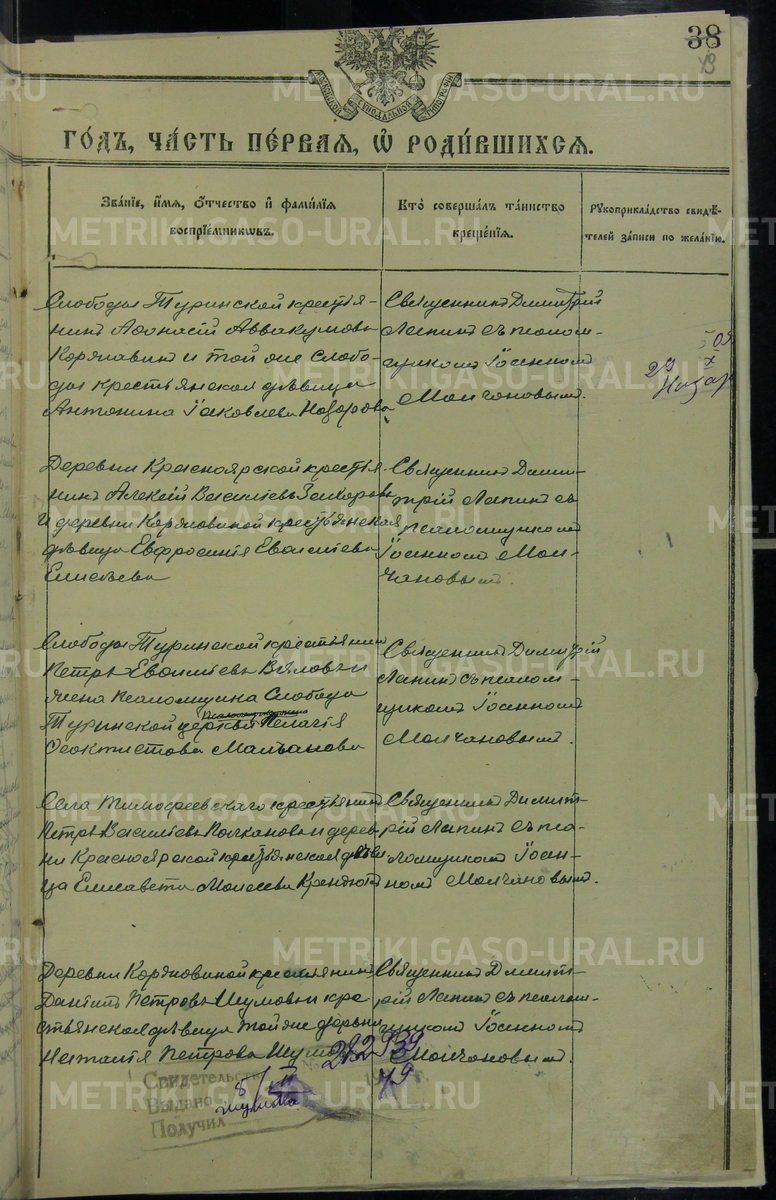 38
METRIKI.GASO-URAL.RU
го́дъ, ча́сть пе́рвая, ѡ҆ роди́вшихсѧ.
Зва́нїе, и҆́мѧ, ѻ҆́тчество и҆ фами́лїѧ
воспрїе́мникѡвъ.
Кто̀ соверша́лъ та́инство
креще́нїѧ.
Рꙋкоприкла́дство свидѣ́-
телей за́писи по жела́нїю.
Слободы Туринской крестья-
нинъ Аѳонасій Аввакумовъ
Корявинъ и той же слобо-
ды крестьянская дѣвица
Антонина Іаковлева Назарова
Священникъ Димитрій
Лапинъ съ псалом-
щикомъ Іоанномъ
Молчановымъ.
Деревни Красноярской крестья-
нинъ Алексій Васильевъ
и деревни Коряковиной крестьянская
дѣвица Евфросинія Евсиліева
Елисѣева
Священникъ Дими-
трій Лапинъ съ
псаломщикомъ
Іоанномъ Мол-
чановымъ.
Слободы Туринской крестьянинъ
Петръ
жена псаломщика Слободы
Туринской церкви Пелагія
Ѳеоктистова Мальганова
Священникъ Димитрій
Лапинъ съ псалом-
щикомъ Іоанномъ
Молчановымъ.
Села Тимофеевскаго крестьянинъ
Петръ Васильевъ Колкановъ и дерев-
ни Красноярской крестьянская дѣви-
ца Елисавета Моисеева
Священникъ Димит-
рій Лапинъ съ пса-
ломщикомъ Іоан-
номъ Молчановымъ.
Деревни Коряковиной крестьянинъ
Даніилъ Петровъ Шумовъ и кре
стьянская дѣвица той же деревни
Наталія Петрова
Священникъ Димит-
рій Лапинъ съ псалом-
щикомъ Іоанномъ
Молчановымъ.
282939
Свидетельство
Выдано
Получил